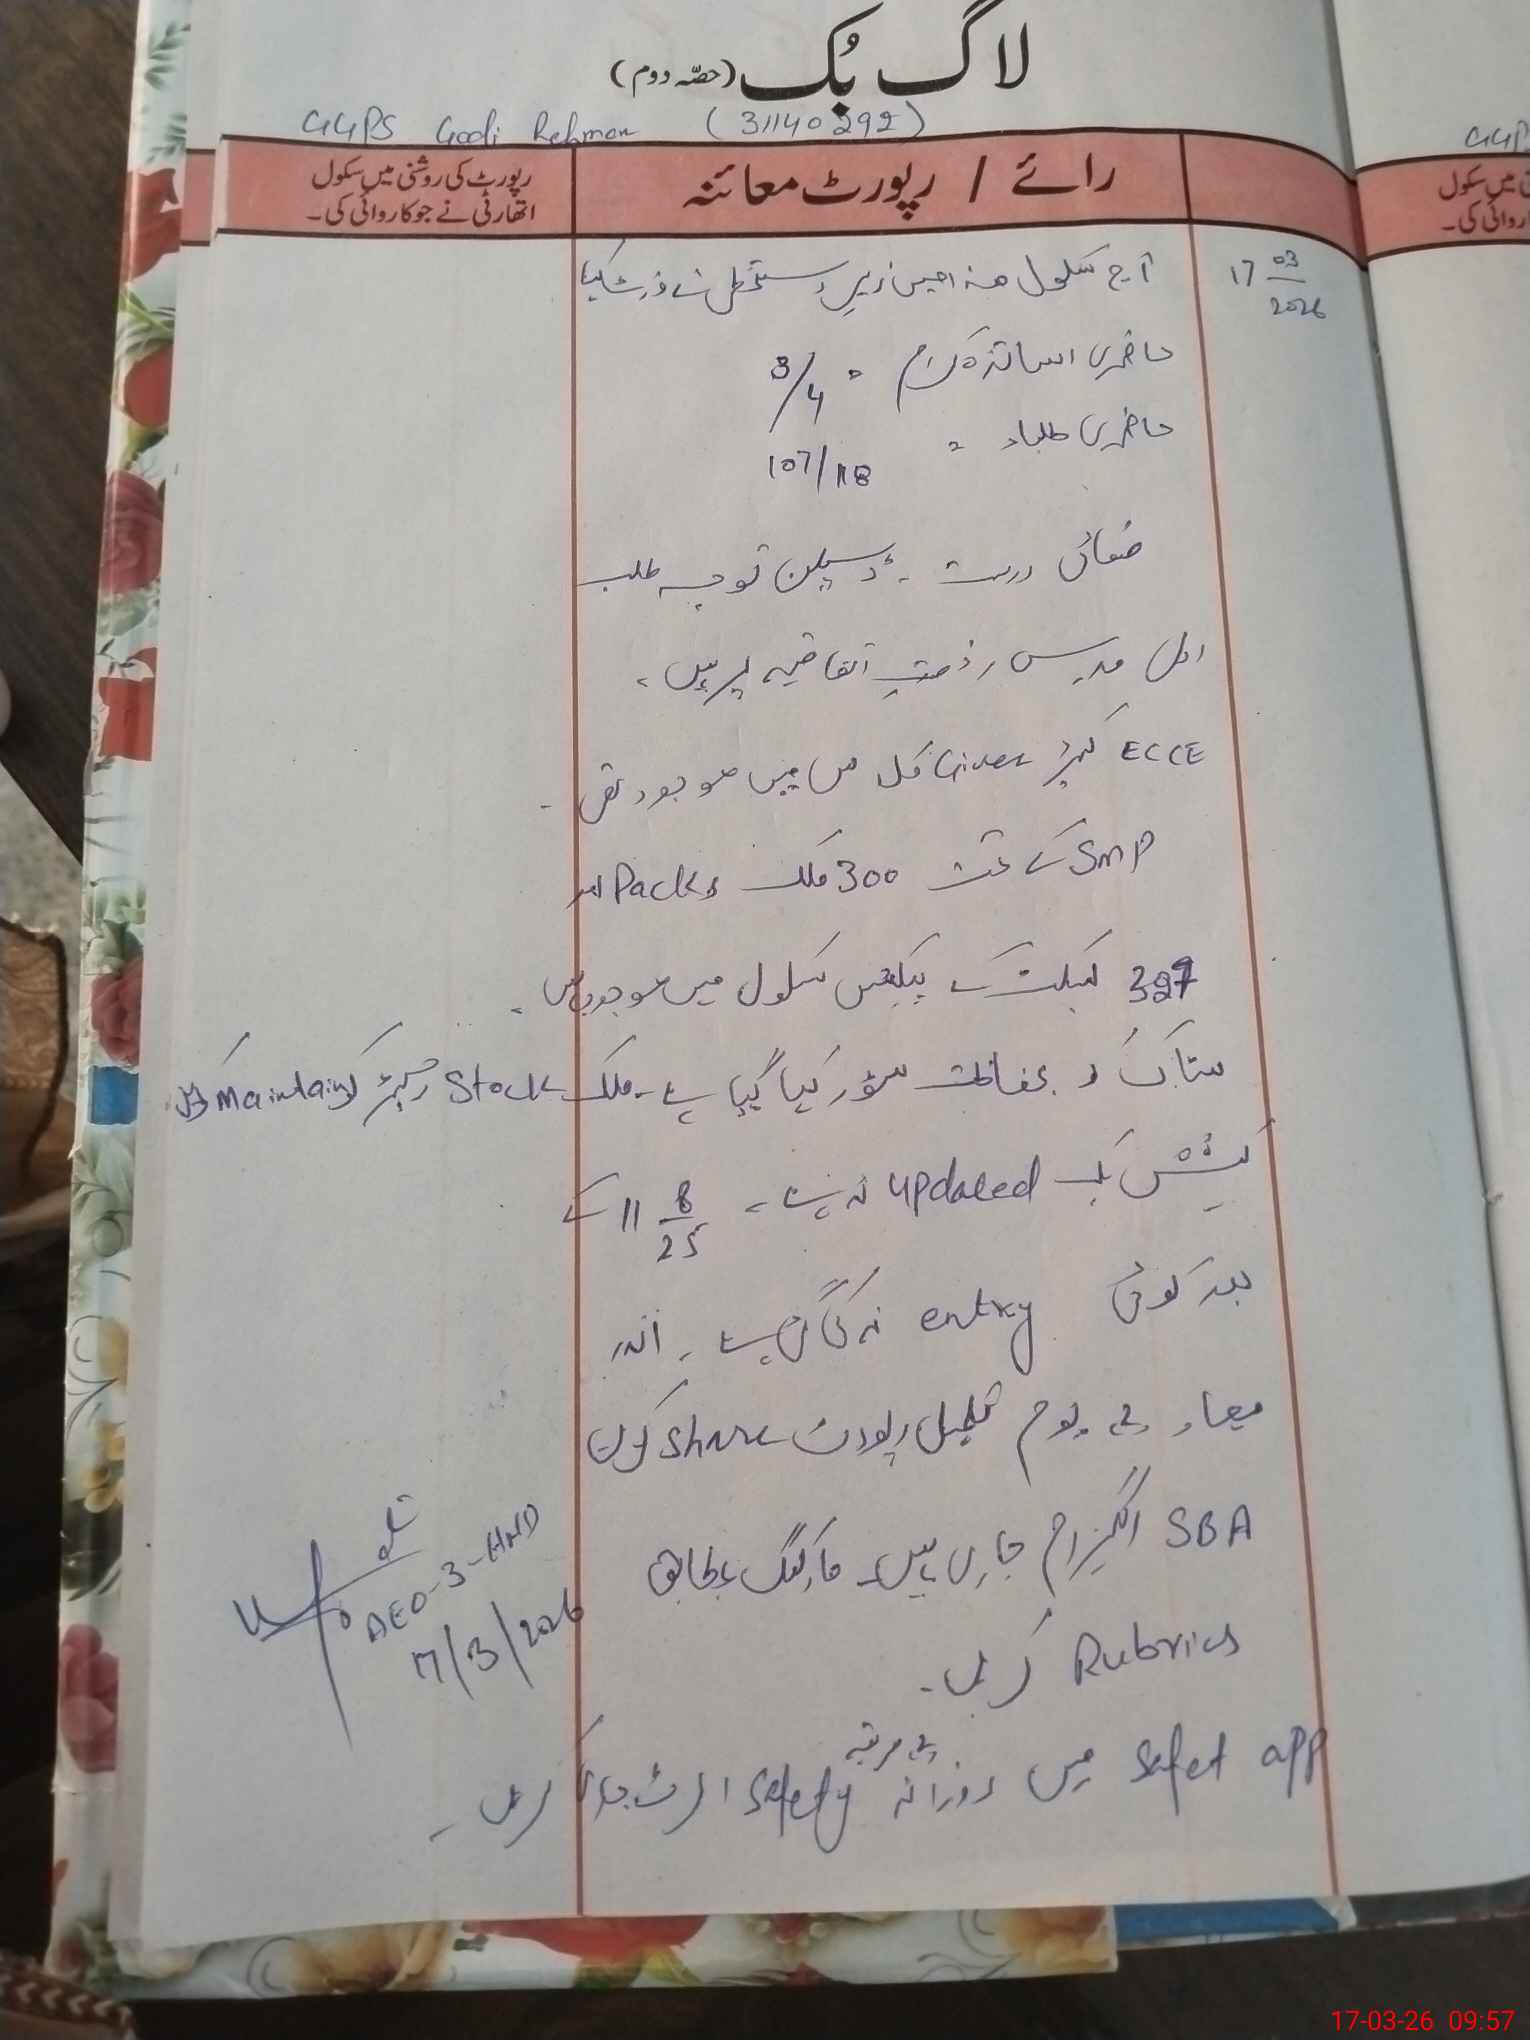 لاگ بُک (حصّہ دوم)
GGPS Godi Rehman (31140292)
رائے / رپورٹ معائنہ
رپورٹ کی روشنی میں سکول
اتھارٹی نے جو کاروائی کی۔
17 03 2026
آج سکول ھذا میں زیر دستخطی نے وزٹ کیا
حاضری اساتذہ کرام = 3/4
حاضری طلباء = 107/118
صفائی درست ۔ ڈسپلن توجہ طلب
اول مدرس رخصت اتفاقیہ پر ہیں ۔
ECCE کیئر Giver کلاس میں موجود تھی ۔
SMP کے تحت 300 ملک Packs اور
بسکٹ کے پیکٹس سکول میں موجود ہیں ۔
سٹاک کو بحفاظت سٹور کیا گیا ہے ۔ ملک Stock رجسٹر Maintain کریں
کیش بک updated نہ ہے ۔ 11 8 25 کے
بعد کوئی entry نہ کی گئی ہے ۔ اندر
میعاد یوم تکمیل رپورٹ share کریں
SBA اگیزام جاری ہیں ۔ مارکنگ بمطابق
Rubrics کریں ۔
Safet app میں روزانہ مرتبہ Safety الرٹ جاری کریں ۔
AEO-3-HND
17/3/2026
GGP
ی میں سکول
روائی کی۔
17-03-26 09:57